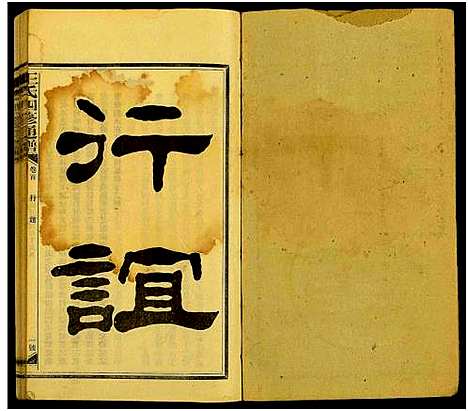 行誼
王氏四修通譜
卷首
行誼
一號